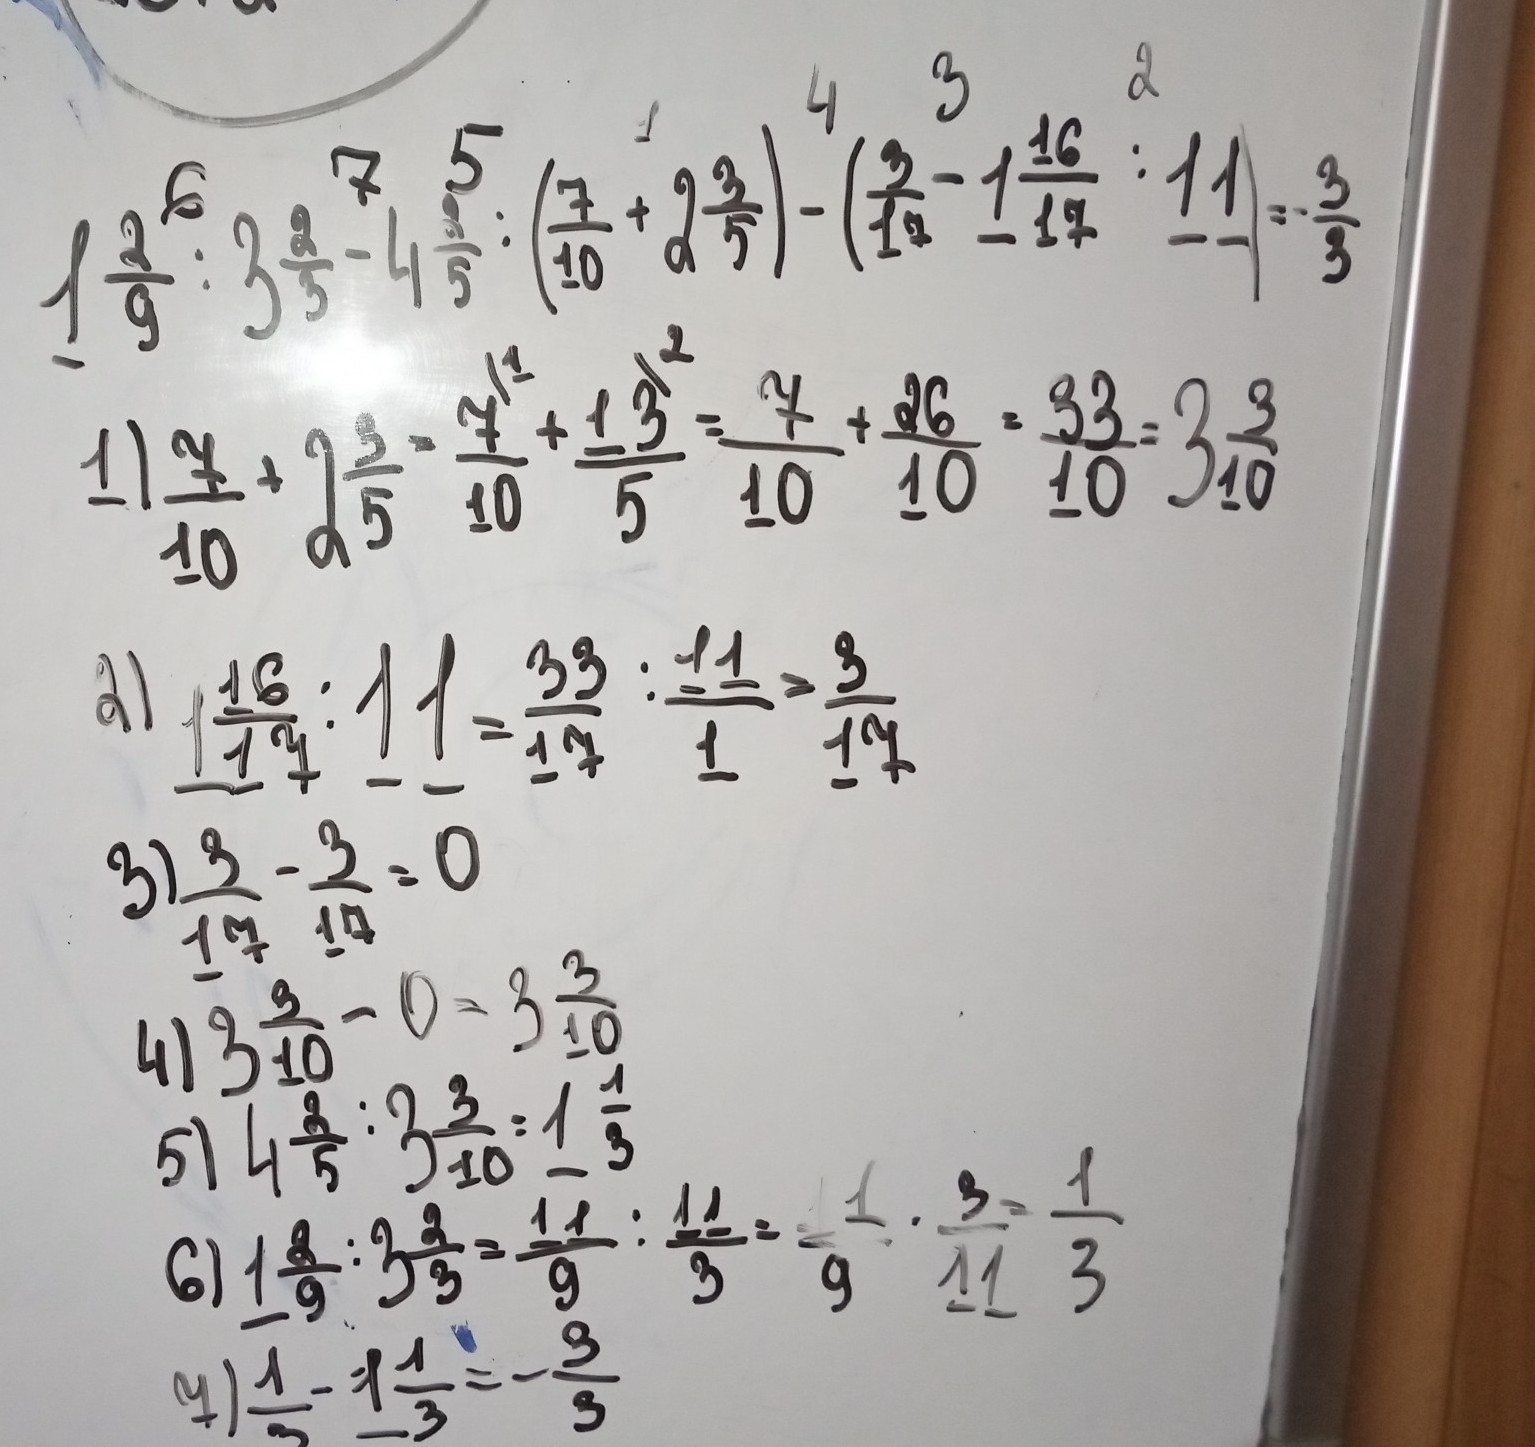 6 7 5 1 4 3 2
1 2/9 : 3 2/3 - 4 2/5 : (7/10 + 2 3/5) - (3/17 - 1 16/17 : 11) = - 3/3
1) 7/10 + 2 3/5 = 7/10 \1 + 13/5 \2 = 7/10 + 26/10 = 33/10 = 3 3/10
2) 1 16/17 : 11 = 33/17 : 11/1 = 3/17
3) 3/17 - 3/17 = 0
4) 3 3/10 - 0 = 3 3/10
5) 4 2/5 : 3 3/10 = 1 1/3
6) 1 2/9 : 3 2/3 = 11/9 : 11/3 = 11/9 · 3/11 = 1/3
7) 1/3 - 1 1/3 = - 3/3